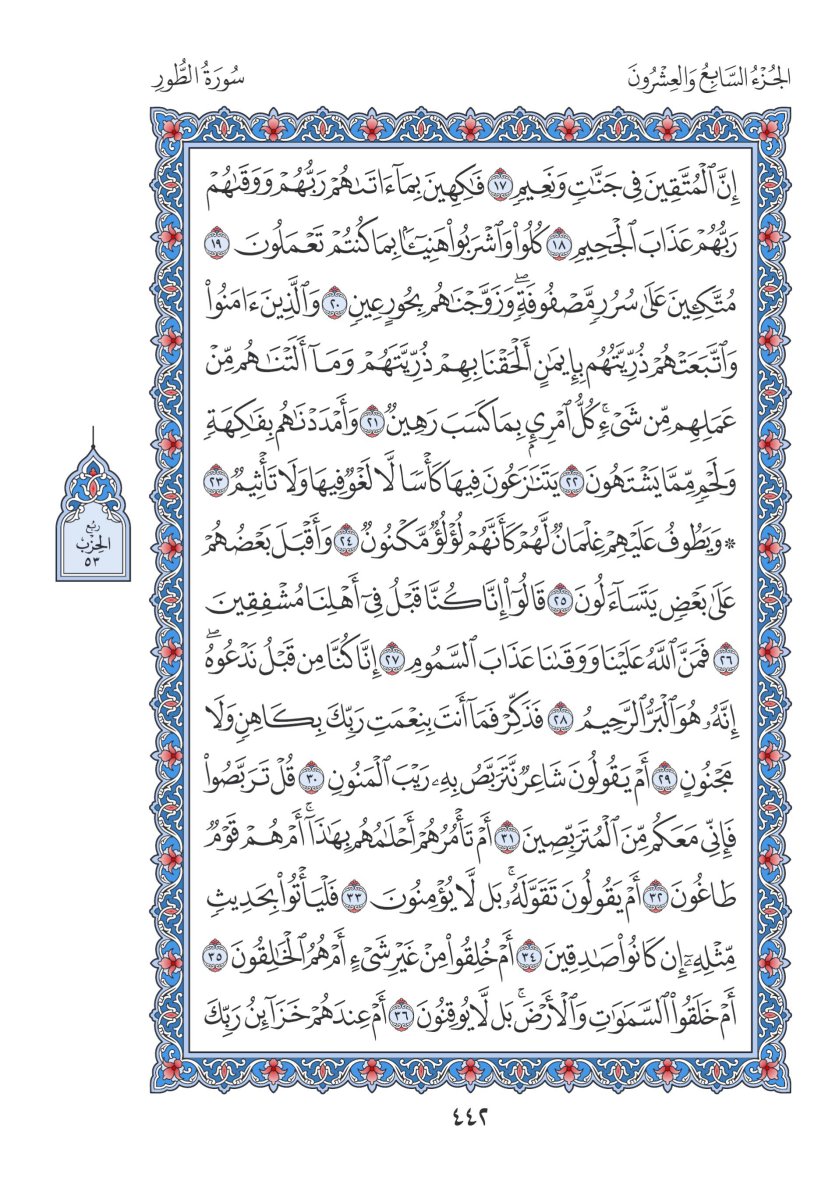 الجُزْءُ السَّابِعُ وَالعِشْرُونَ
سُورَةُ الطُّورِ
إِنَّ ٱلْمُتَّقِينَ فِى جَنَّٰتٍ وَنَعِيمٍ ١٧ فَٰكِهِينَ بِمَآ ءَاتَىٰهُمْ رَبُّهُمْ وَوَقَىٰهُمْ
رَبُّهُمْ عَذَابَ ٱلْجَحِيمِ ١٨ كُلُوا۟ وَٱشْرَبُوا۟ هَنِيٓـًٔۢا بِمَا كُنتُمْ تَعْمَلُونَ ١٩
مُتَّكِـِٔينَ عَلَىٰ سُرُرٍ مَّصْفُوفَةٍ ۖ وَزَوَّجْنَٰهُم بِحُورٍ عِينٍ ٢٠ وَٱلَّذِينَ ءَامَنُوا۟
وَٱتَّبَعَتْهُمْ ذُرِّيَّتُهُم بِإِيمَٰنٍ أَلْحَقْنَا بِهِمْ ذُرِّيَّتَهُمْ وَمَآ أَلَتْنَٰهُم مِّنْ
عَمَلِهِم مِّن شَىْءٍ ۚ كُلُّ ٱمْرِئٍۭ بِمَا كَسَبَ رَهِينٌ ٢١ وَأَمْدَدْنَٰهُم بِفَٰكِهَةٍ
وَلَحْمٍ مِّمَّا يَشْتَهُونَ ٢٢ يَتَنَٰزَعُونَ فِيهَا كَأْسًا لَّا لَغْوٌ فِيهَا وَلَا تَأْثِيمٌ ٢٣
* وَيَطُوفُ عَلَيْهِمْ غِلْمَانٌ لَّهُمْ كَأَنَّهُمْ لُؤْلُؤٌ مَّكْنُونٌ ٢٤ وَأَقْبَلَ بَعْضُهُمْ
رُبْع
الحِزْب
٥٣
عَلَىٰ بَعْضٍ يَتَسَآءَلُونَ ٢٥ قَالُوٓا۟ إِنَّا كُنَّا قَبْلُ فِىٓ أَهْلِنَا مُشْفِقِينَ
٢٦ فَمَنَّ ٱللَّهُ عَلَيْنَا وَوَقَىٰنَا عَذَابَ ٱلسَّمُومِ ٢٧ إِنَّا كُنَّا مِن قَبْلُ نَدْعُوهُ ۖ
إِنَّهُۥ هُوَ ٱلْبَرُّ ٱلرَّحِيمُ ٢٨ فَذَكِّرْ فَمَآ أَنتَ بِنِعْمَتِ رَبِّكَ بِكَاهِنٍ وَلَا
مَجْنُونٍ ٢٩ أَمْ يَقُولُونَ شَاعِرٌ نَّتَرَبَّصُ بِهِۦ رَيْبَ ٱلْمَنُونِ ٣٠ قُلْ تَرَبَّصُوا۟
فَإِنِّى مَعَكُم مِّنَ ٱلْمُتَرَبِّصِينَ ٣١ أَمْ تَأْمُرُهُمْ أَحْلَٰمُهُم بِهَٰذَآ ۚ أَمْ هُمْ قَوْمٌ
طَاغُونَ ٣٢ أَمْ يَقُولُونَ تَقَوَّلَهُۥ ۚ بَل لَّا يُؤْمِنُونَ ٣٣ فَلْيَأْتُوا۟ بِحَدِيثٍ
مِّثْلِهِۦٓ إِن كَانُوا۟ صَٰدِقِينَ ٣٤ أَمْ خُلِقُوا۟ مِنْ غَيْرِ شَىْءٍ أَمْ هُمُ ٱلْخَٰلِقُونَ ٣٥
أَمْ خَلَقُوا۟ ٱلسَّمَٰوَٰتِ وَٱلْأَرْضَ ۚ بَل لَّا يُوقِنُونَ ٣٦ أَمْ عِندَهُمْ خَزَآئِنُ رَبِّكَ
٤٤٢